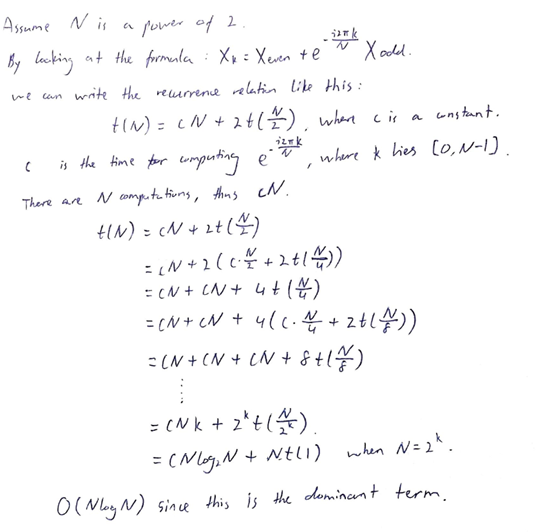 Assume N is a power of 2.
By looking at the formula : X_k = X_even + e^{-i2πk/N} X_odd.
we can write the recurrence relation like this :
t(N) = cN + 2t(N/2), where c is a constant.
c is the time for computing e^{-i2πk/N}, where k lies [0, N-1].
There are N computations, thus cN.
t(N) = cN + 2t(N/2)
= cN + 2(c·N/2 + 2t(N/4))
= cN + cN + 4t(N/4)
= cN + cN + 4(c·N/4 + 2t(N/8))
= cN + cN + cN + 8t(N/8)
⋮
= cNk + 2^k t(N/2^k)
= cNlog₂N + Nt(1) when N = 2^k.
O(NlogN) since this is the dominant term.